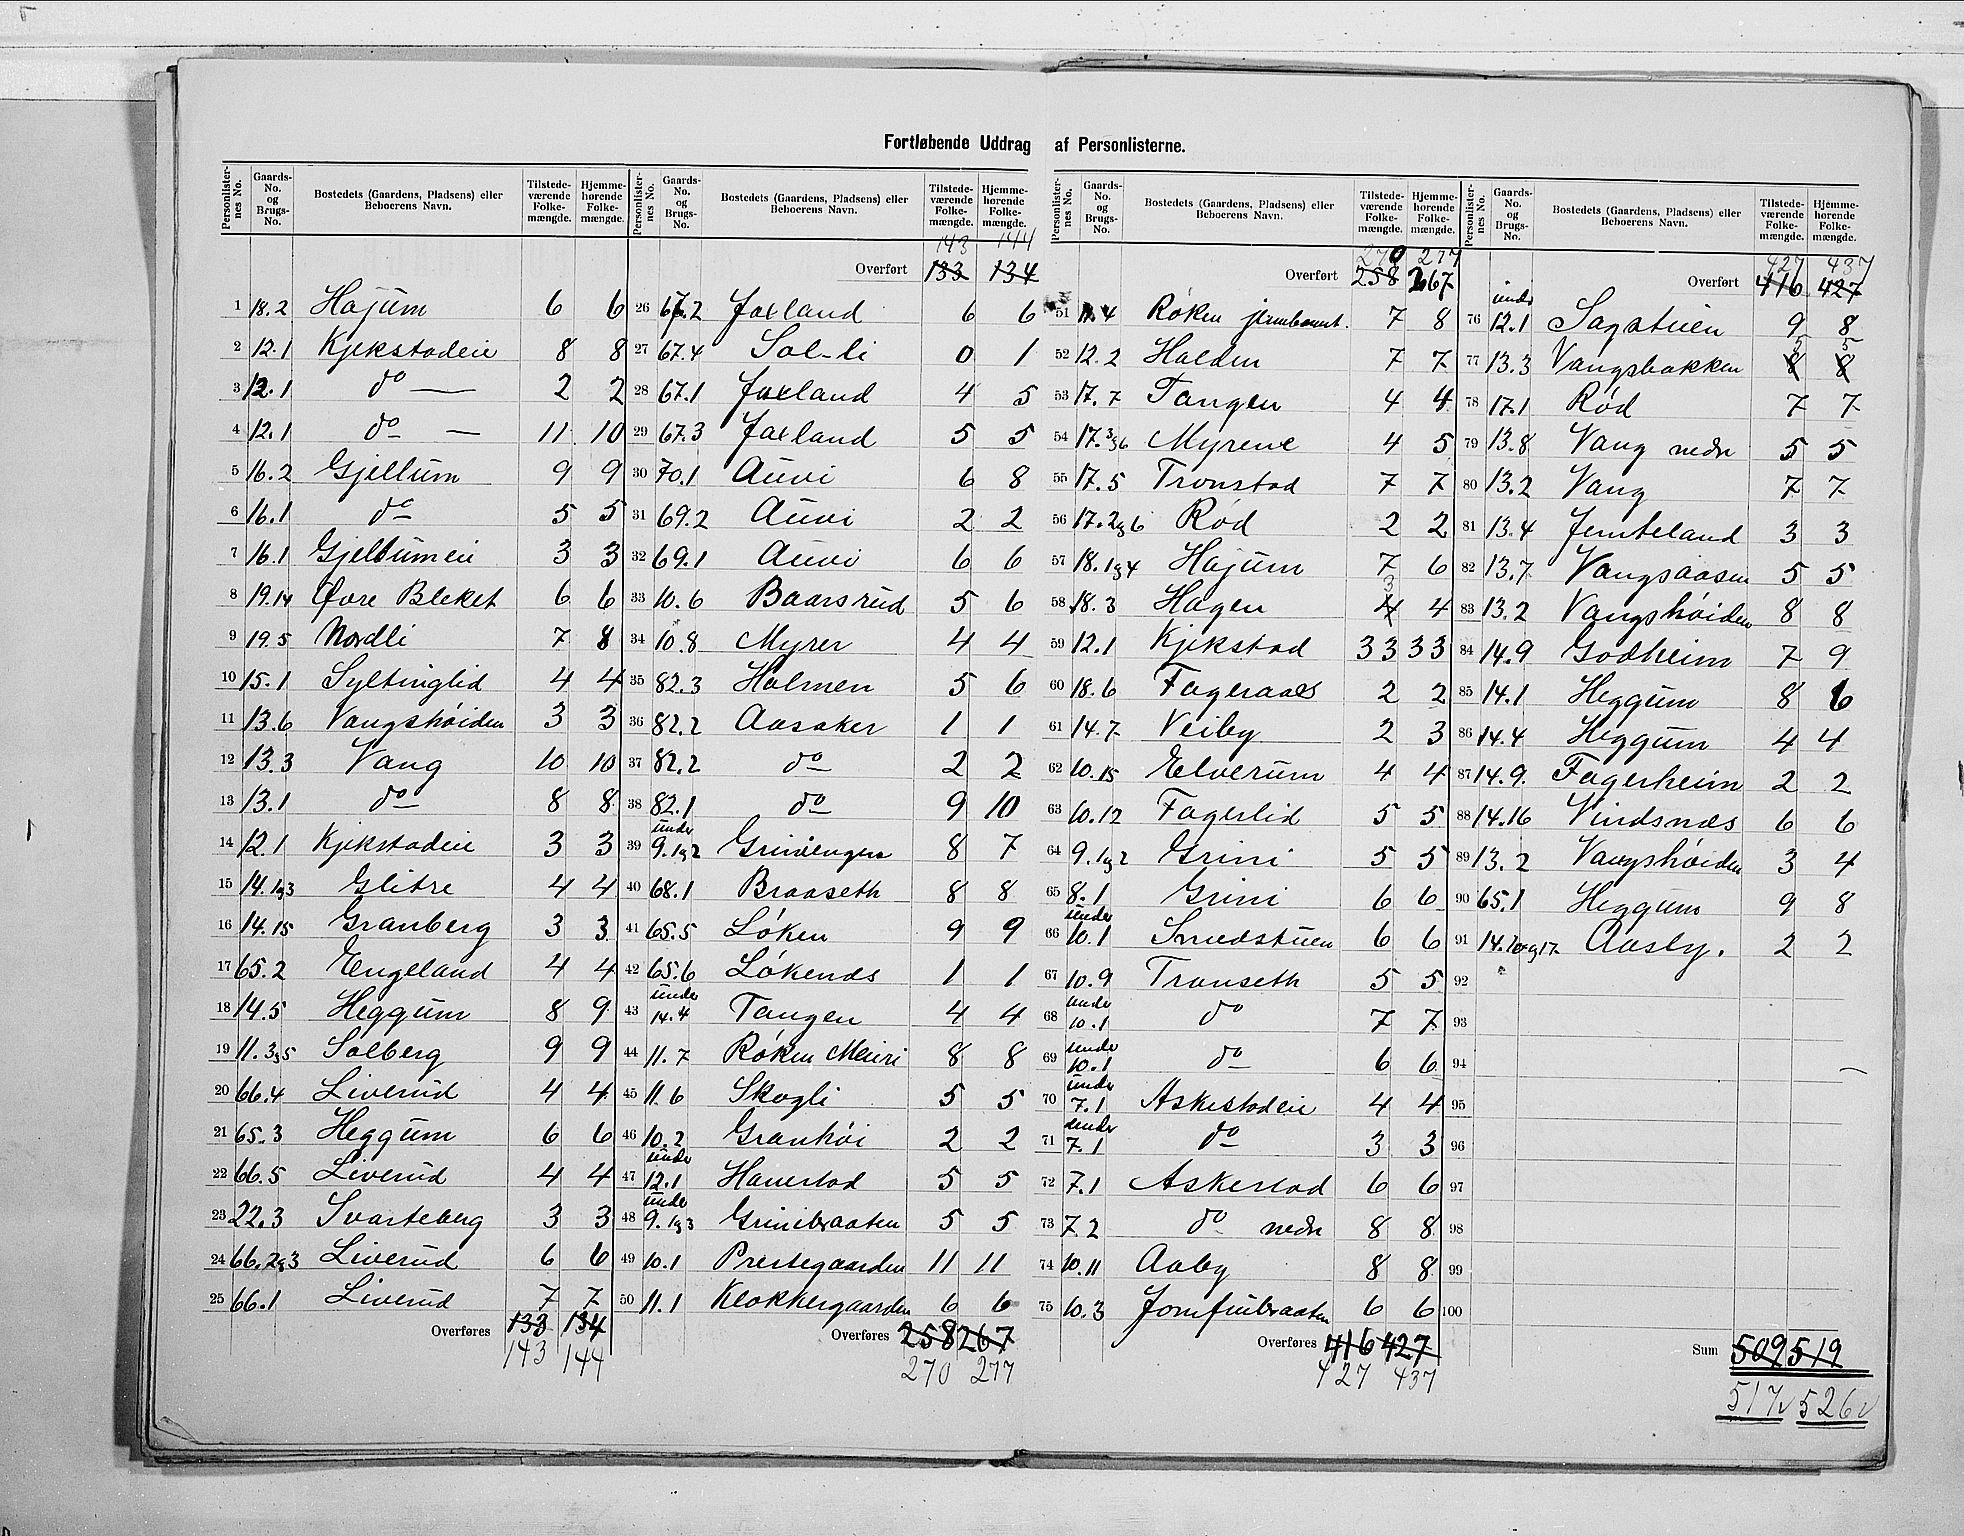 Fortløbende Uddrag af Personlisterne.
Personlister-nes No. Gaards-No. og Brugs-No. Bostedets (Gaardens, Pladsens) eller Beboerens Navn. Tilstede-værende Folke-mængde. Hjemme-hørende Folke-mængde.
1 18.2 Hajum 6 6
2 12.1 Kjekstadeie 8 8
3 12.1 do — 2 2
4 12.1 do — 11 10
5 16.2 Gjellum 9 9
6 16.1 do 5 5
7 16.1 Gjellumeie 3 3
8 19.14 Øvre Bleket 6 6
9 19.5 Nordli 7 8
10 15.1 Syltinglid 4 4
11 13.6 Vangshøiden 3 3
12 13.3 Vang 10 10
13 13.1 do 8 8
14 12.1 Kjekstadeie 3 3
15 14.1og3 Glitre 4 4
16 14.15 Granberg 3 3
17 65.2 Engeland 4 4
18 14.5 Heggum 8 9
19 11.3og5 Solberg 9 9
20 66.4 Liverud 4 4
21 65.3 Heggum 6 6
22 66.5 Liverud 4 4
23 22.3 Svarteberg 3 3
24 66.2og3 Liverud 6 6
25 66.1 Liverud 7 7
Overføres 133 134
143 144
Personlister-nes No. Gaards-No. og Brugs-No. Bostedets (Gaardens, Pladsens) eller Beboerens Navn. Tilstede-værende Folke-mængde. Hjemme-hørende Folke-mængde.
143 144
Overført 133 134
26 67.2 Foxland 6 6
27 67.4 Sol-li 0 1
28 67.1 Foxland 4 5
29 67.3 Foxland 5 5
30 70.1 Auvi 6 8
31 69.2 Auvi 2 2
32 69.1 Auvi 6 6
33 10.6 Baarsrud 5 6
34 10.8 Myrer 4 4
35 82.3 Holmen 5 6
36 82.2 Aasaker 1 1
37 82.2 do 2 2
38 82.1 do 9 10
39 under 9.1og2 Griniengen 8 7
40 68.1 Braaseth 8 8
41 65.5 Løken 9 9
42 65.6 Løkenes 1 1
43 under 14.4 Tangen 4 4
44 11.7 Røken Meieri 8 8
45 11.6 Skogli 5 5
46 10.2 Granhøi 2 2
47 under 12.1 Hanestad 5 5
48 under 9.1og3 Grinibraaten 5 5
49 10.1 Prestegaarden 11 11
50 11.1 Klokkergaarden 6 6
Overføres 258 267
270 277
Personlister-nes No. Gaards-No. og Brugs-No. Bostedets (Gaardens, Pladsens) eller Beboerens Navn. Tilstede-værende Folke-mængde. Hjemme-hørende Folke-mængde.
270 277
Overført 258 267
51 11.4 Røken jernbanest. 7 8
52 12.2 Halden 7 7
53 17.7 Tangen 4 4
54 17.3og6 Myrene 4 5
55 17.5 Tronstad 7 7
56 17.2og6 Rød 2 2
57 18.1og4 Hajum 7 6
58 18.3 Hagen 4 3 4
59 12.1 Kjekstad 33 33
60 18.6 Fageraas 2 2
61 14.7 Veiby 2 3
62 10.15 Elverum 4 4
63 10.12 Fagerlid 5 5
64 9.1og2 Grini 5 5
65 8.1 Grini 6 6
66 under 10.1 Smedstuen 6 6
67 10.9 Transeth 5 5
68 under 10.1 do 7 7
69 under 10.1 do 6 6
70 under 7.1 Askestadeie 4 4
71 under 7.1 do 3 3
72 7.1 Askestad 6 6
73 7.2 do nedre 8 8
74 10.11 Aaby 8 8
75 10.3 Jomfrubraaten 6 6
Overføres 416 427
427 437
Personlister-nes No. Gaards-No. og Brugs-No. Bostedets (Gaardens, Pladsens) eller Beboerens Navn. Tilstede-værende Folke-mængde. Hjemme-hørende Folke-mængde.
427 437
Overført 416 427
76 under 12.1 Sagstuen 9 8
77 13.3 Vangsbakken 8 5 8 5
78 17.1 Rød 7 7
79 13.8 Vang nedr 5 5
80 13.2 Vang 7 7
81 13.4 Jemteland 3 3
82 13.7 Vangsaasen 5 5
83 13.2 Vangshøiden 8 8
84 14.9 Godheim 7 9
85 14.1 Heggum 8 6
86 14.4 Heggum 4 4
87 14.9. Fagerheim 2 2
88 14.16 Vindsnæs 6 6
89 13.2 Vangshøiden 3 4
90 65.1 Heggum 9 8
91 14.10og17 Aasby. 2 2
92
93
94
95
96
97
98
99
100
Sum 509 519
517 526